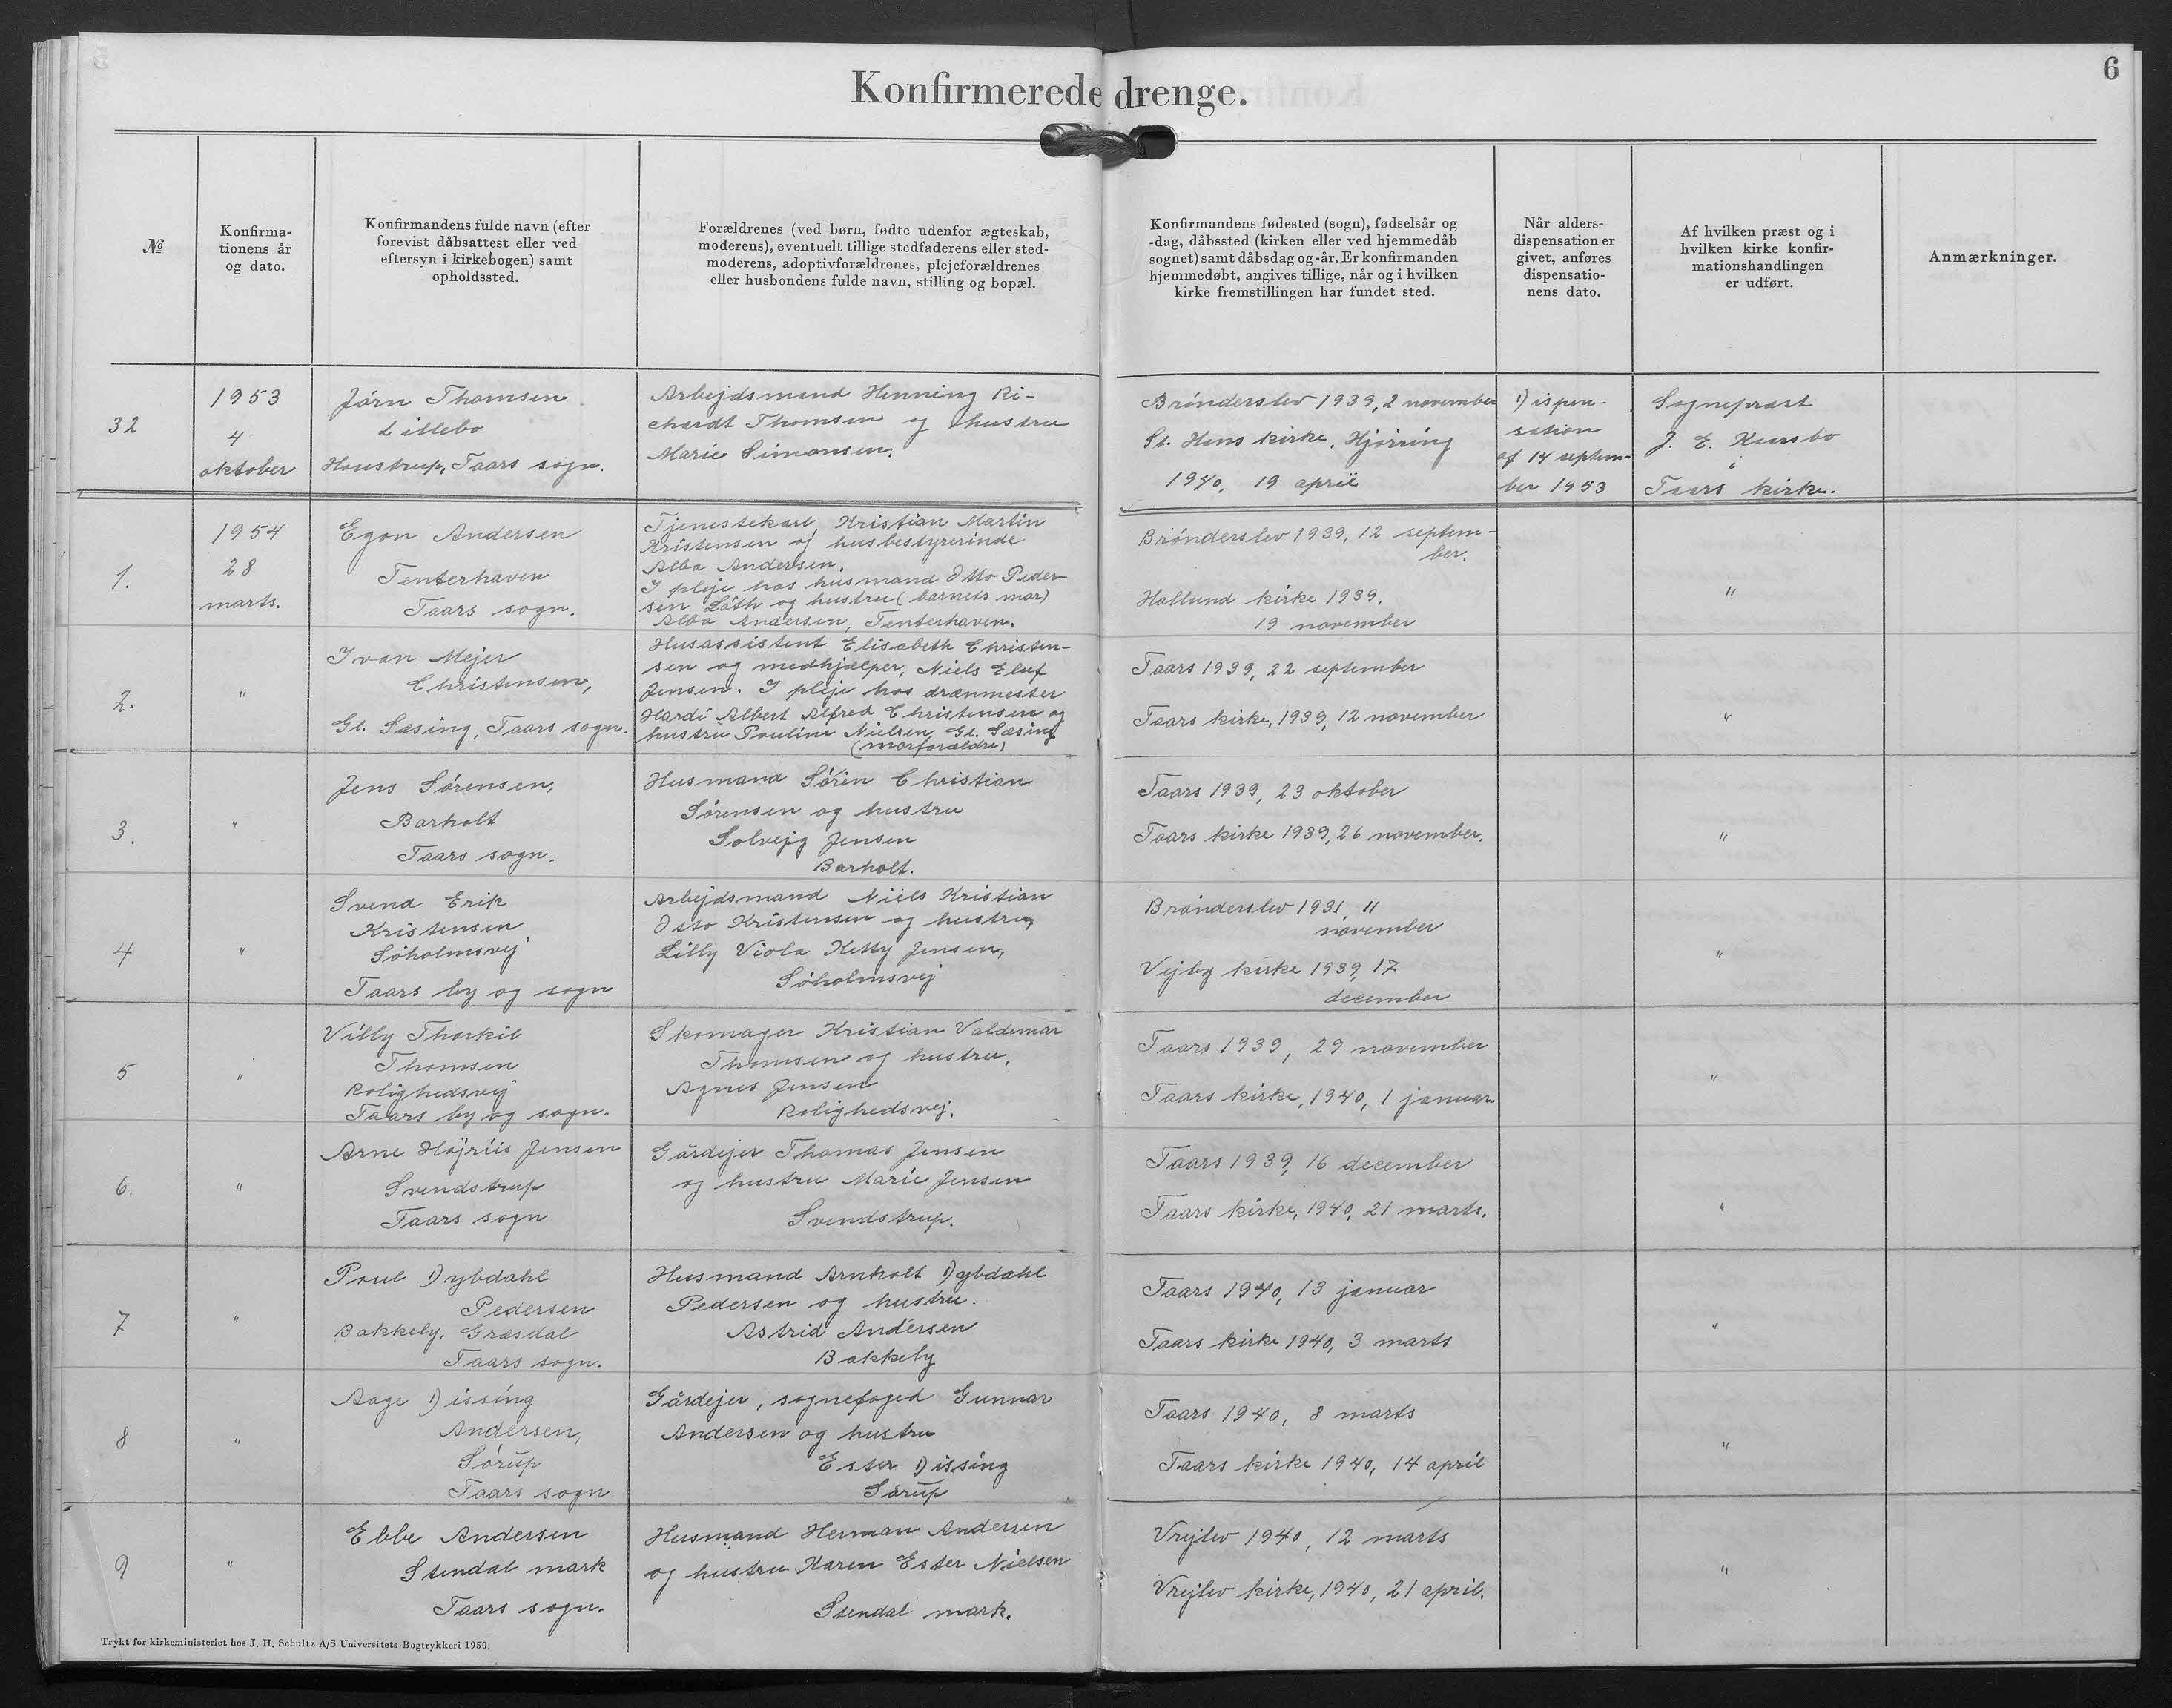 6
Konfirmerede drenge.
№
Konfirma-
tionens år
og dato.
Konfirmandens fulde navn (efter
forevist dåbsattest eller ved
eftersyn i kirkebogen) samt
opholdssted.
Forældrenes (ved børn, fødte udenfor ægteskab,
moderens), eventuelt tillige stedfaderens eller sted-
moderens, adoptivforældrenes, plejeforældrenes
eller husbondens fulde navn, stilling og bopæl.
Konfirmandens fødested (sogn), fødselsår og
-dag, dåbssted (kirken eller ved hjemmedåb
sognet) samt dåbsdag og -år. Er konfirmanden
hjemmedøbt, angives tillige, når og i hvilken
kirke fremstillingen har fundet sted.
Når alders-
dispensation er
givet, anføres
dispensatio-
nens dato.
Af hvilken præst og i
hvilken kirke konfir-
mationshandlingen
er udført.
Anmærkninger.
32
1953
4
oktober
Jörn Thomsen
Lillebo
Houstrup, Taars sogn.
Arbejdsmand Henning Ri-
chardt Thomsen og hustru
Marie Simonsen.
Brönderslev 1939, 2 november
St. Hans kirke, Hjörring
1940, 19 april
Dispen-
sation
af 14 septem-
ber 1953
Sognepræst
J. E. Kaarsbo
i
Taars kirke.
1.
1954
28
marts.
Egon Andersen
Tenterhaven
Taars sogn.
Tjenestekarl, Kristian Martin
Kristensen og husbestyrerinde
Alba Andersen.
I pleje hos husmand Otto Peder-
sen Låth og hustru (barnets mor)
Alba Andersen, Tenterhaven.
Brønderslev 1939, 12 septem-
ber.
Hallund kirke 1939,
19 november
"
2.
"
Ivan Mejer
Christensen,
Gl. Sæsing, Taars sogn.
Husassistent Elisabeth Christen-
sen og medhjælper, Niels Eluf
Jensen. I pleje hos drænmester
Hardi Albert Alfred Christensen og
hustru Pouline Nielsen, Gl. Sæsing
(morforældre)
Taars 1939, 22 september
Taars kirke, 1939, 12 november
"
3.
"
Jens Sörensen,
Barholt
Taars sogn.
Husmand Sörin Christian
Sörensen og hustru
Solvejg Jensen
Barholt.
Taars 1939, 23 oktober
Taars kirke 1939, 26 november.
"
4
"
Svend Erik
Kristensen
Söholmsvej
Taars by og sogn
Arbejdsmand Niels Kristian
Otto Kristensen og hustru,
Lilly Viola Ketty Jensen,
Söholmsvej
Brönderslev 1931, 11
november
Vejby kirke 1939, 17
december
"
5
"
Villy Thorkil
Thomsen
Rolighedsvej
Taars by og sogn.
Skomager Kristian Valdemar
Thomsen og hustru,
Agnes Jensen
Rolighedsvej.
Taars 1939, 29 november
Taars kirke, 1940, 1 januar
"
6.
"
Arne Højriis Jensen
Svendstrup
Taars sogn
Gårdejer Thomas Jensen
og hustru Marie Jensen
Svendstrup.
Taars 1939, 16 december
Taars kirke, 1940, 21 marts.
"
7
"
Poul Dybdahl
Pedersen
Bakkely, Græsdal
Taars sogn.
Husmand Arnholt Dybdahl
Pedersen og hustru.
Astrid Andersen
Bakkely
Taars 1940, 13 januar
Taars kirke 1940, 3 marts
"
8
"
Aage Dissing
Andersen,
Sörup
Taars sogn
Gårdejer, sognefoged Gunnar
Andersen og hustru
Ester Dissing
Sörup
Taars 1940, 8 marts
Taars kirke 1940, 14 april
"
9
"
Ebbe Andersen
Stendal mark
Taars sogn.
Husmand Herman Andersen
og hustru Karen Ester Nielsen
Stendal mark.
Vrejlev 1940, 12 marts
Vrejlev kirke, 1940, 21 april.
"
Trykt for kirkeministeriet hos J. H. Schultz A/S Universitets-Bogtrykkeri 1950.